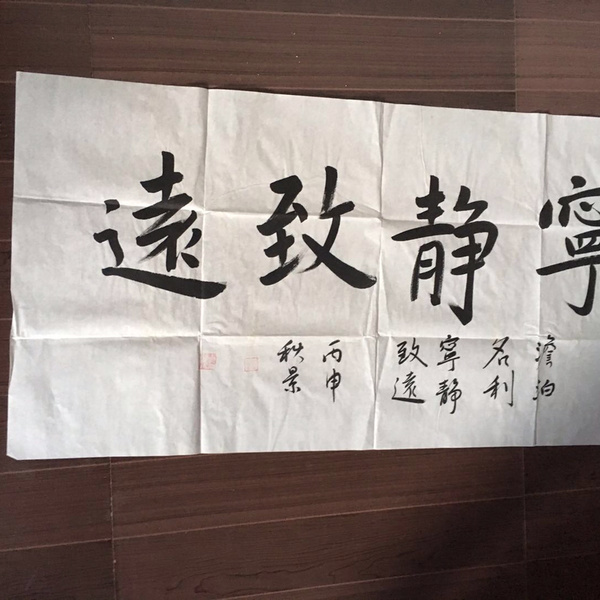 寧靜致遠
澹泊
名利
寧靜
致遠
丙申
秋景